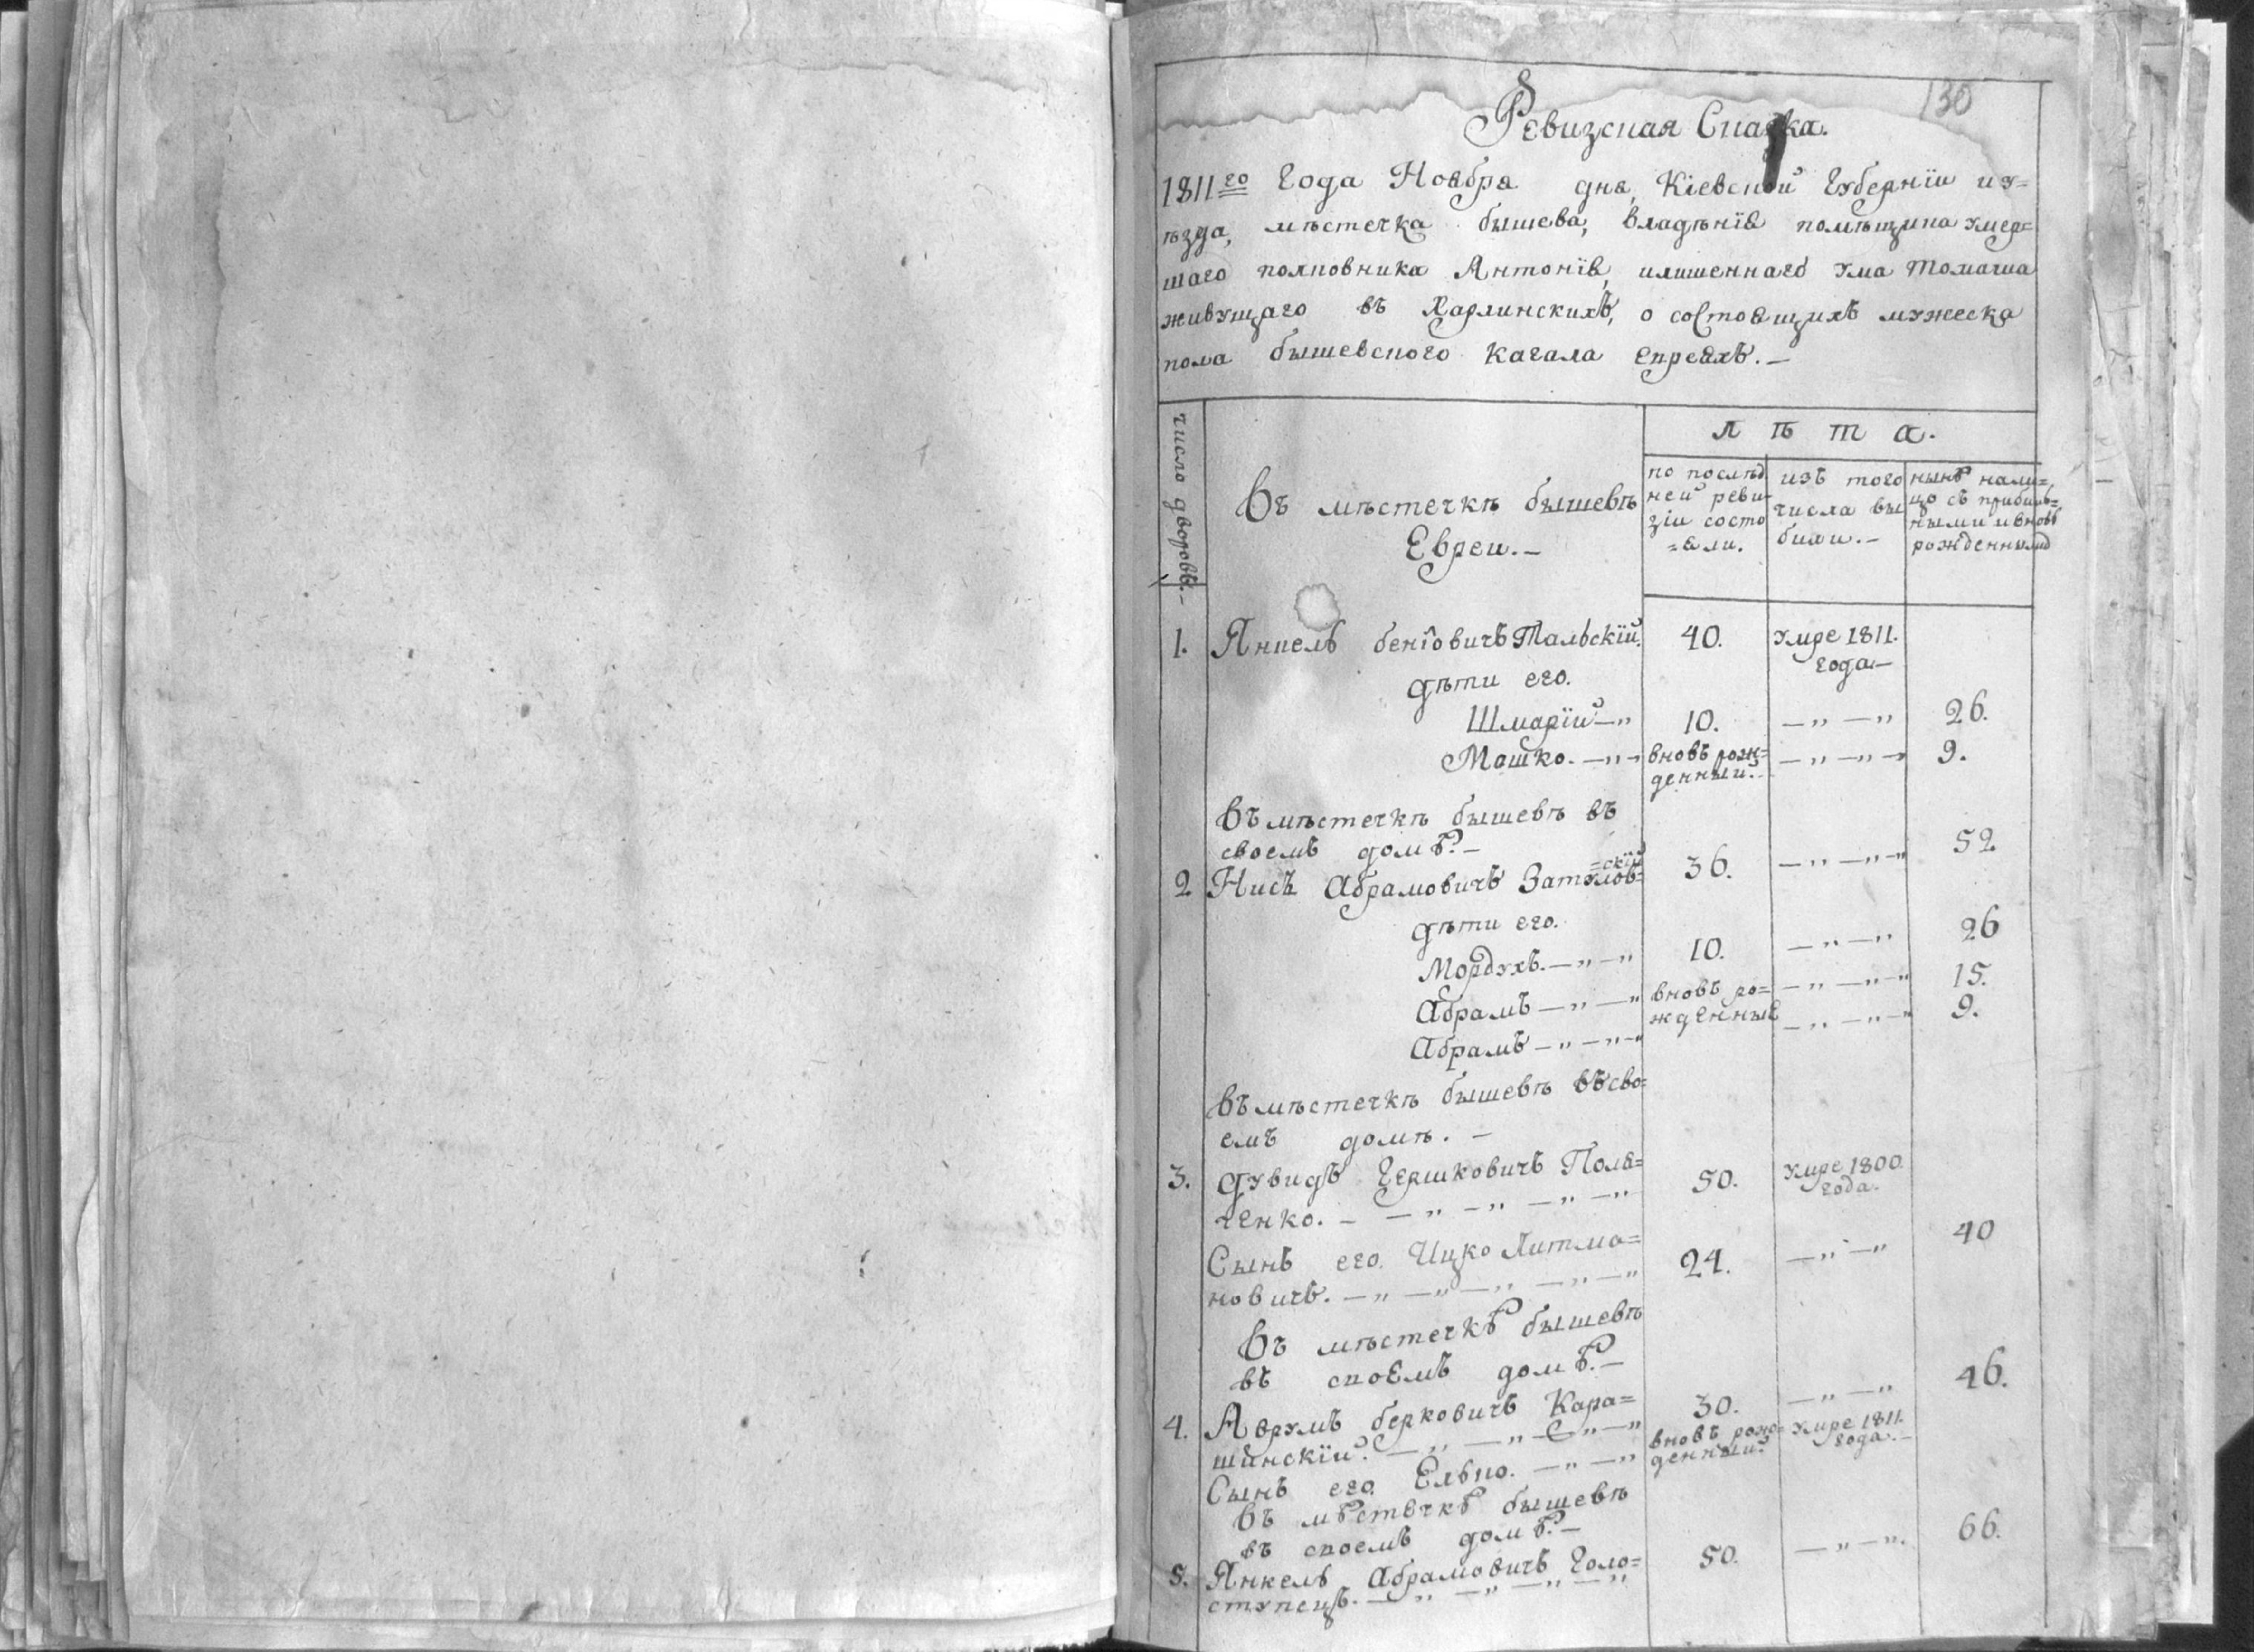 130
Ревизская Сказка.
1811го года Ноября дня, Кіевской губерніи и у=
ѣзда, мѣстечка бышева, владѣнія помѣщика умер=
шаго полковника Антонія, илишеннаго ума Томаша
живущаго въ Харлинскихъ, о состоящихъ мужеска
пола бышевского кагала евреяхъ.—
число дворовъ.—
Въ мѣстечкѣ бышевѣ
Евреи.—
лѣта.
по послѣд
ней реви-
зіи состо
=яли.
изъ того
числа вы
были.—
нынѣ нали=
цо съ прибыл=
ными ивновь
рожденными
1. Янкель беніовичъ Тальскій. 40. умре 1811.
года—
дѣти его.
Шмарій —„ 10. —„—„ 26.
Мошко. —„— вновь рож= —„—„— 9.
денный.
въ мѣстечкѣ бышевѣ въ
своемъ домѣ.—
=скій
2 Нисъ Абрамовичъ Затулов= 36. —„—„— 52
дѣти его.
Мордухъ.—„—„ 10. —„—„ 26
Абрамъ—„—„ вновь ро= —„—„—„ 15.
жденные
Абрамъ—„—„—„ —„—„—„ 9.
въ мѣстечкѣ бышевѣ въ сво=
емъ домѣ.—
3. Дувидъ Гершковичъ Поля= 50. умре 1800.
года.
ченко.— —„—„—„—„
Сынъ его. Ицко Литма= 24. —„—„ 40
новичъ.—„—„—„—„—„
Въ мѣстечкѣ бышевѣ
въ своемъ домѣ.—
4. Аврумъ берковичъ Кара= 30. —„—„ 46.
шинскій.—„—„—„—„
Сынъ его. Елько.—„—„ вновь рож= умре 1811.
денный. года.—
въ мѣстечкѣ бышевѣ
въ своемъ домѣ.—
5. Янкель Абрамовичъ Голо= 50. —„—„. 66.
ступецъ.—„—„—„—„